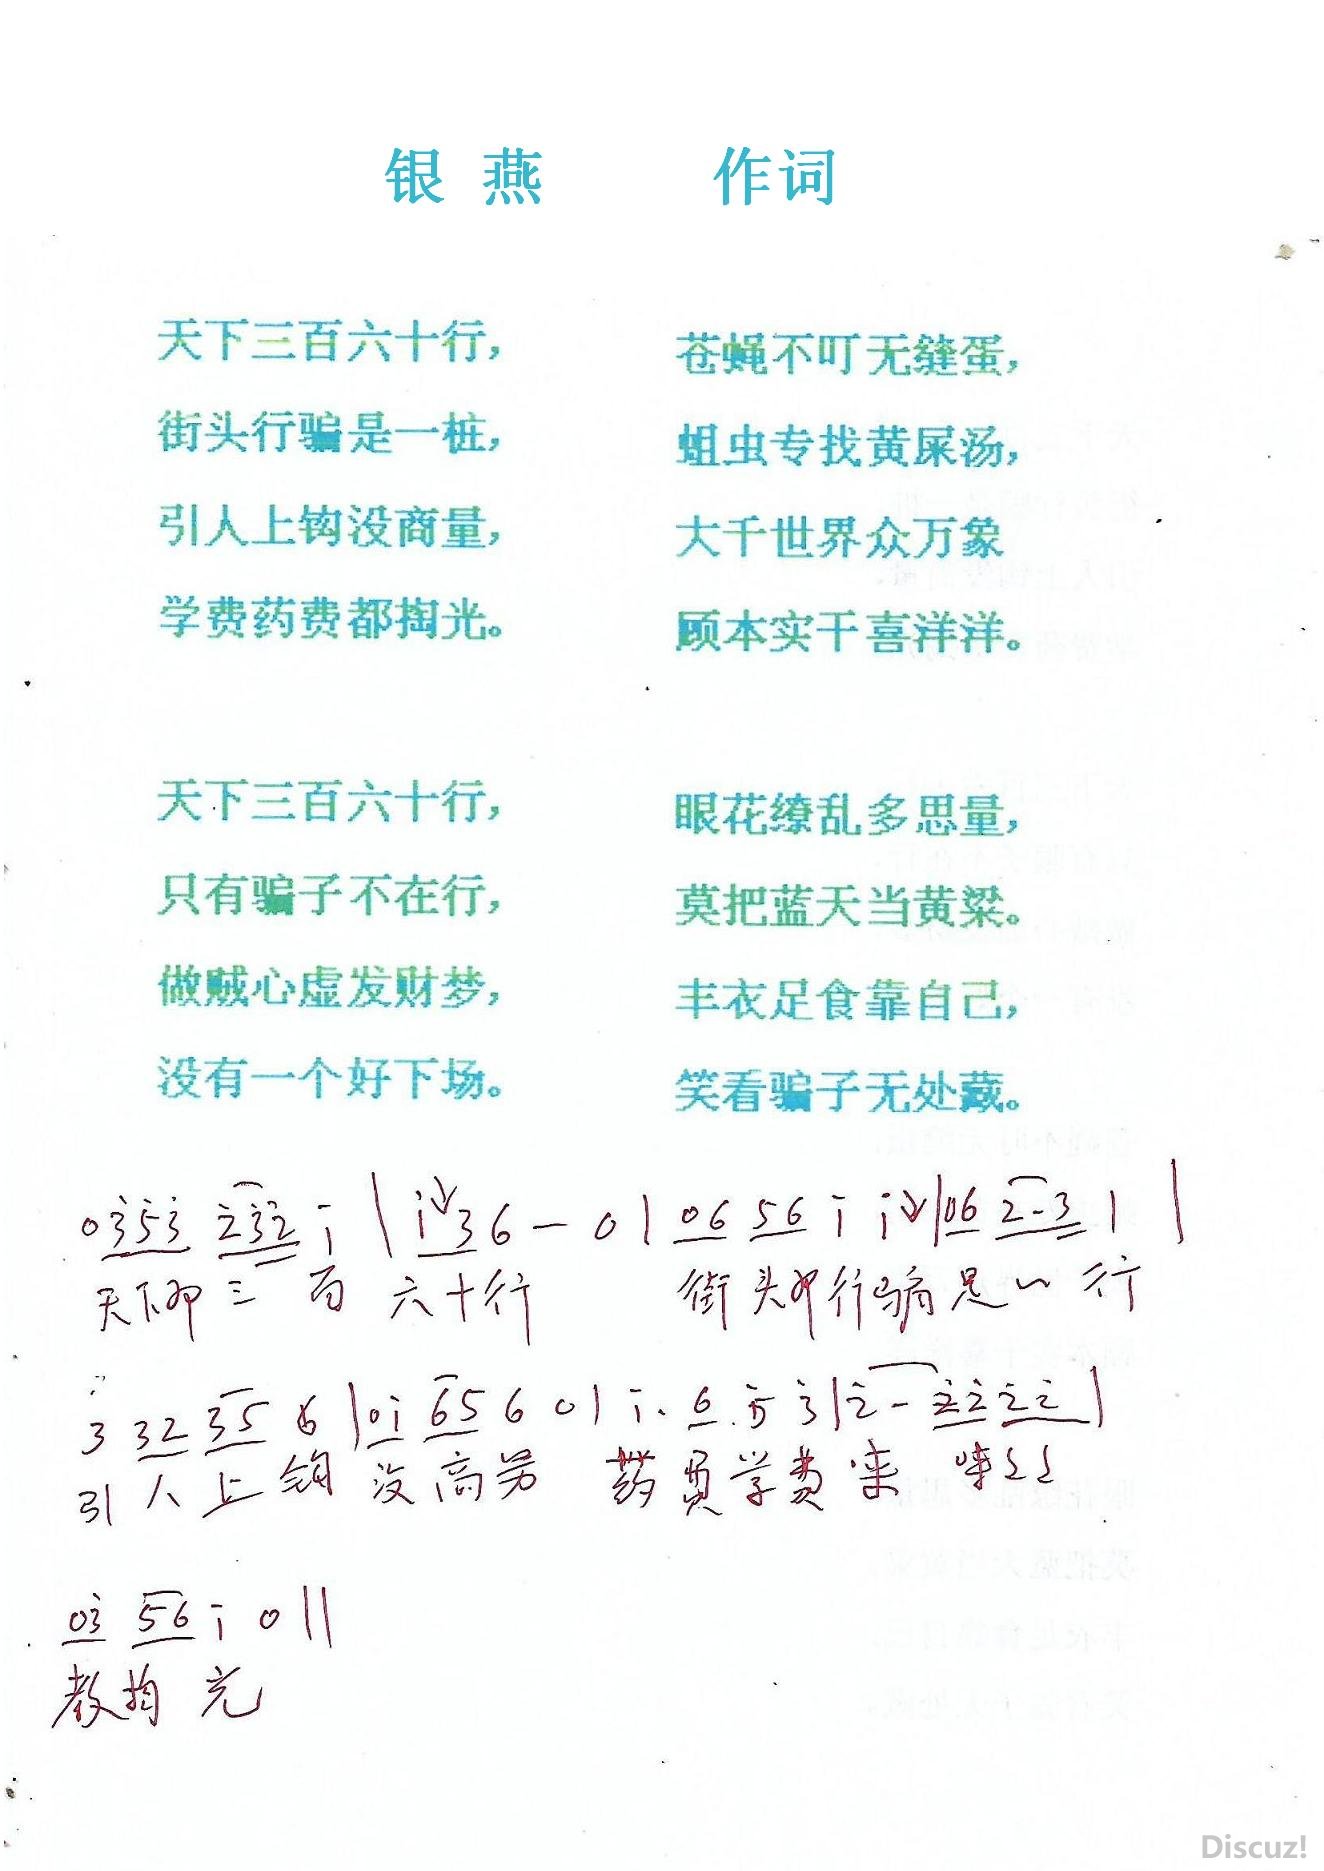 银燕 作词
天下三百六十行，
街头行骗是一桩，
引人上钩没商量，
学费药费都掏光。
苍蝇不叮无缝蛋，
蛆虫专找黄屎汤，
大千世界众万象
顾本实干喜洋洋。
天下三百六十行，
只有骗子不在行，
做贼心虚发财梦，
没有一个好下场。
眼花缭乱多思量，
莫把蓝天当黄粱。
丰衣足食靠自己，
笑看骗子无处藏。
0353 232 i | i36 — 0 | 06 56 i i | 06 2-3 1 |
天下那三百六十行 街头那行骗是一行
3 32 35 6 | 0i 65 6 0 | i. 6. 5 3 | 2 - 22 22 |
引人上钩没商 药费学费来 来
03 56 i 0 ||
光
Discuz!